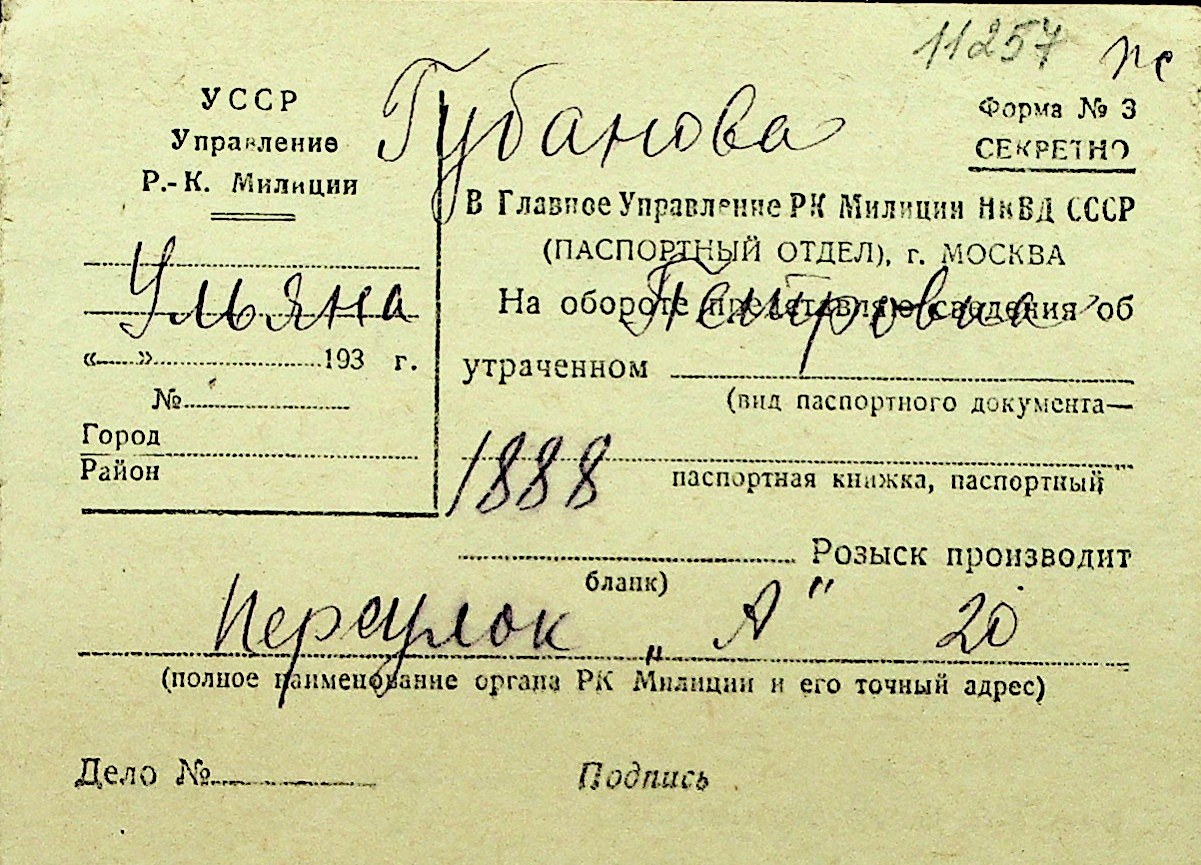 11257 пс
Губанова
УССР
Управление
Р.-К. Милиции
Форма № 3
СЕКРЕТНО
В Главное Управление РК Милиции НКВД СССР
(ПАСПОРТНЫЙ ОТДЕЛ), г. МОСКВА
Ульяна Петровна
На обороте представляю сведения об
«......».......................193 г.
утраченном
(вид паспортного документа—
№
Город
Район
1888
паспортная книжка, паспортный
бланк)
Розыск производит
переулок „А" 20
(полное наименование органа РК Милиции и его точный адрес)
Дело №
Подпись